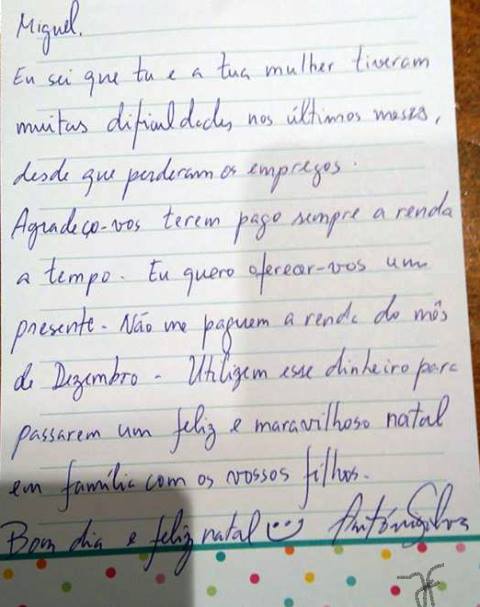 Miguel,
Eu sei que tu e a tua mulher tiveram
muitas dificuldades nos últimos meses,
desde que perderam os empregos.
Agradeço-vos terem pago sempre a renda
a tempo. Eu quero oferecer-vos um
presente. Não me paguem a renda do mês
de Dezembro. Utilizem esse dinheiro para
passarem um feliz e maravilhoso natal
em família com os vossos filhos.
Bom dia e feliz natal António Silva